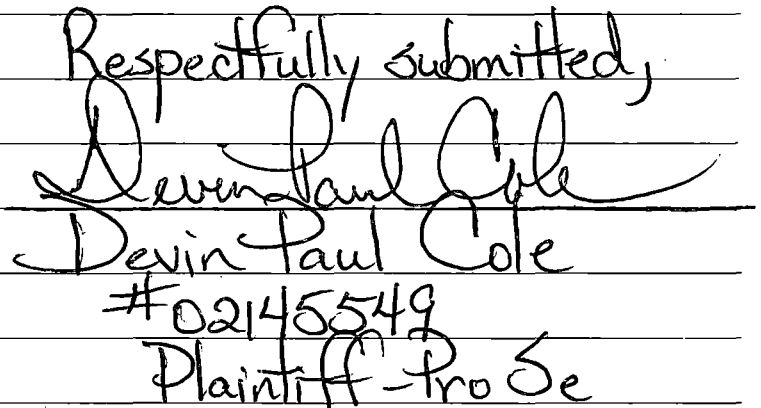 Respectfully submitted,
Devin Paul Cole
Devin Paul Cole
#02145549
Plaintiff-Pro Se